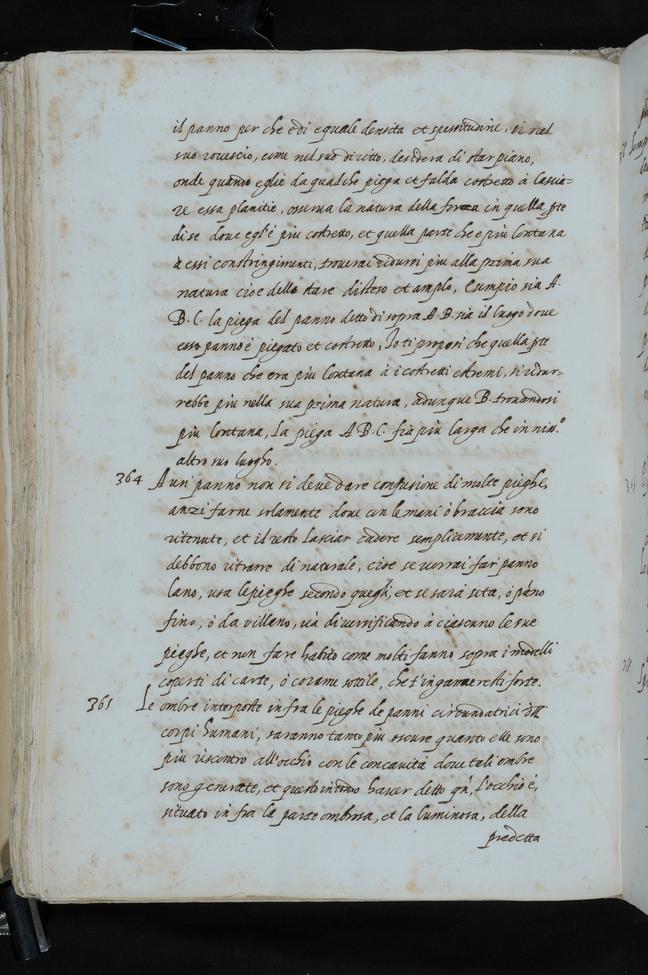 il panno per che è di equale densita et spessitudine, si nel
suo rovescio, come nel suo diritto, desidera di star piano,
onde quando eglie da qualche piega o falda costretto à lascia=
re essa planitie, osserva la natura della forza in quella pte
di se dove egl'è più costretto, et quella parte che è più lontana
a essi constringimenti, troverai ridursi piu alla prima sua
natura cioe dello stare disteso et amplo, Esempio sia A.
B.C. la piega del panno detto di sopra A.B. sia il luogo dove
esso panno è piegato et costretto, Io ti proposi che quella pte
del panno che era più lontana à i costretti estremi, si ridur=
rebbe più nella sua prima natura, adunque B. trovandosi
più lontana, la piega A B.C. fia più larga che in niū.º
altro suo luogho.
364 A un panno non si deve dare confusione di molte pieghe,
anzi farne solamente dove con le mani ò braccia sono
ritenute, et il resto lasciar cadere semplicemente, et si
debbono ritrarre di naturale, cioe se vorrai far panno
lano, usa le pieghe secondo quegli, et se sarà seta, ò pāno
fino, ò da villano, và diversificando à ciascuno le sue
pieghe, et non fare habito come molti fanno sopra i modelli
coperti di carte, ò corame sottile, che t'inganneresti forte.
365 Le ombre interposte in fra le pieghe de panni circundatrici dlli
corpi humani, saranno tanto più oscure quanto elle sono
più riscontro all'occhio con le concavità dove tali ombre
sono generate, et questo intendo haver detto qñ, l'occhio é,
situato in fra la parte ombrosa, et la luminosa, della
predetta